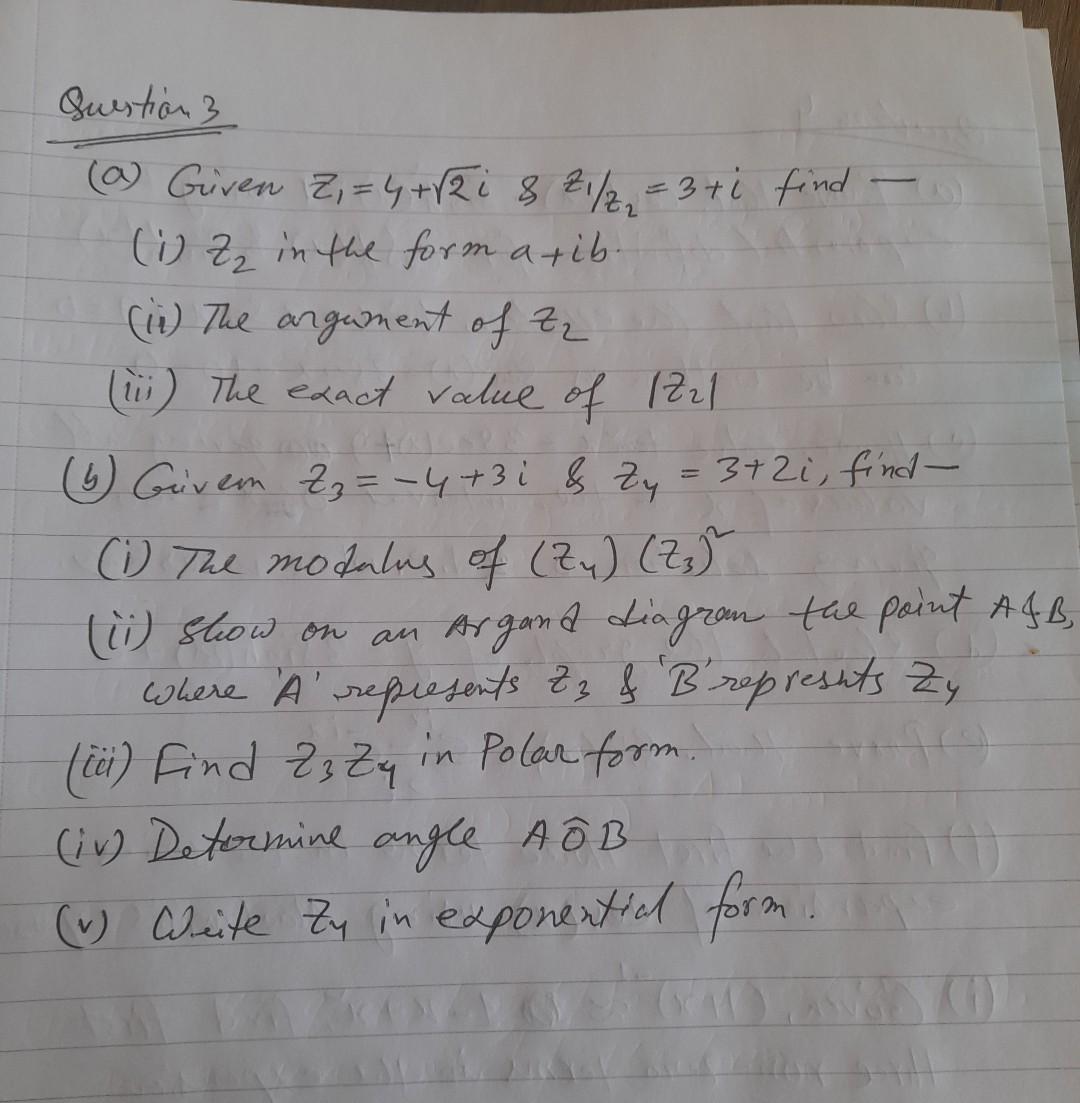 Question 3
(a) Given Z₁ = 4+√2i & Z₁/Z₂ = 3+i find —
(i) Z₂ in the form a+ib.
(ii) The argument of Z₂
(iii) The exact value of |Z₂|
(b) Given Z₃ = -4+3i & Z₄ = 3+2i, find—
(i) The modulus of (Z₄) (Z₃)²
(ii) Show on an Argand diagram the point A & B,
where 'A' represents Z₃ & 'B' represnts Z₄
(iii) Find Z₃Z₄ in Polar form.
(iv) Determine angle AÔB
(v) Write Z₄ in exponential form.